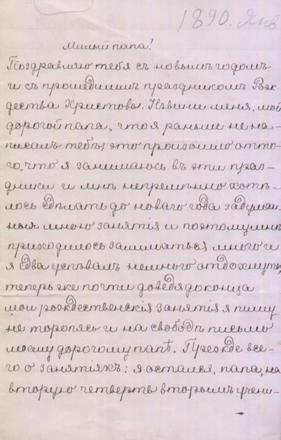 1890. Янв.
Милый папа!
Поздравляю тебя съ новымъ годомъ
и съ прошедшимъ праздникомъ Рож
дества Христова. Извини меня, мой
дорогой папа, что я раньше не на-
писалъ тебѣ; это произошло отто-
го, что я занимаюсь въ эти праз-
дники и мнѣ непремѣнно хотѣ-
лось сдѣлать до новаго года задуман-
ныя мною занятія и поэтому мнѣ
приходилось заниматься много и
я едва успѣвалъ немного отдохнуть,
теперь же почти доведя до конца
мои рождественскія занятія я пишу
не торопясь и на свободѣ письмо
моему дорогому папѣ. Прежде все-
го о занятіяхъ: я остался, папа, на
вторую четверть вторымъ учени-